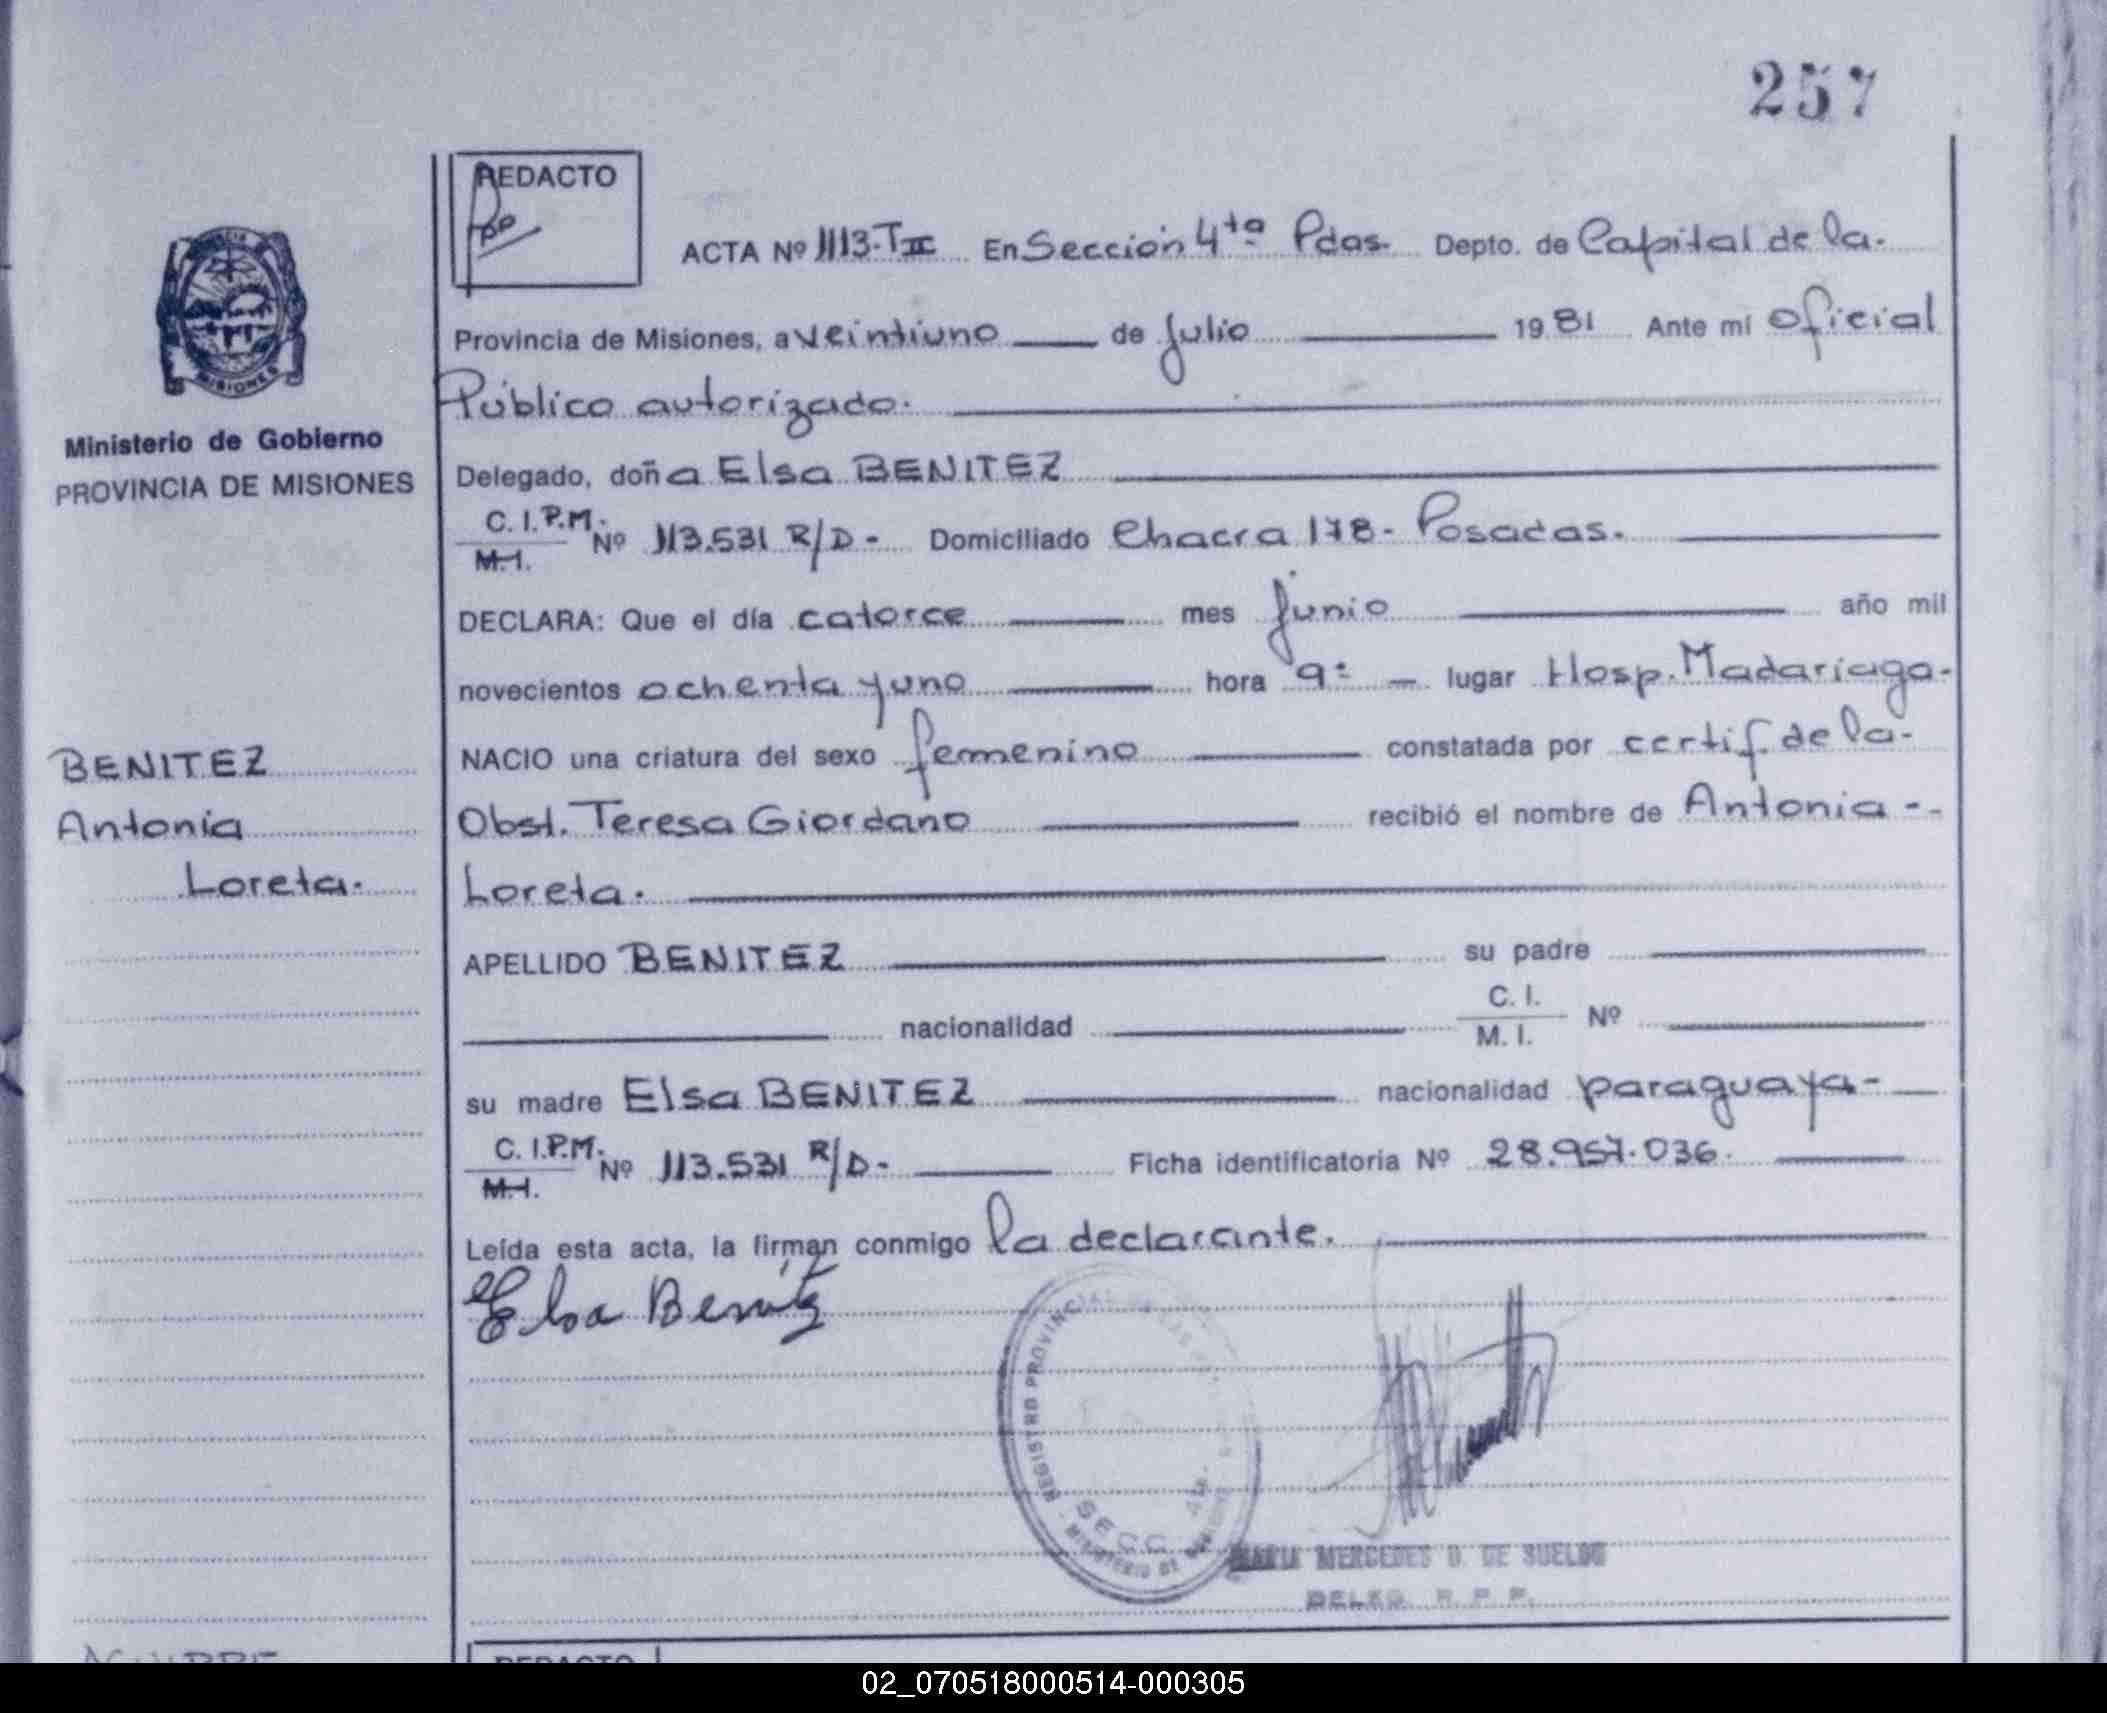 257
REDACTO
ACTA Nº 1113.T II En Sección 4ta Pdas. Depto. de Capital de la.
Provincia de Misiones, a veintiuno de Julio 1981 Ante mí oficial
Público autorizado.
Ministerio de Gobierno
PROVINCIA DE MISIONES
MISIONES
Delegado, doña Elsa BENITEZ
C. I. P.M. Nº 113.531 R/D - Domiciliado Chacra 178 - Posadas.
M. I.
DECLARA: Que el día catorce mes Junio año mil
novecientos ochenta y uno hora 9: lugar Hosp. Madariaga.
NACIO una criatura del sexo femenino constatada por certif. de la -
Obst. Teresa Giordano recibió el nombre de Antonia - -
Loreta.
BENITEZ
Antonia
Loreta.
APELLIDO BENITEZ su padre
nacionalidad C. I. Nº
M. I.
su madre Elsa BENITEZ nacionalidad paraguaya -
C. I. P.M. Nº 113.531 R/D - Ficha identificatoria Nº 28.957.036.
M. I.
Leída esta acta, la firman conmigo la declarante.
Elsa Benitez
REGISTRO PROVINCIAL
SECC. 4ta.
MINISTERIO DE
MARIA MERCEDES D. DE SUELDO
DELEG. R. P. P.
REDACTO
02_070518000514-000305